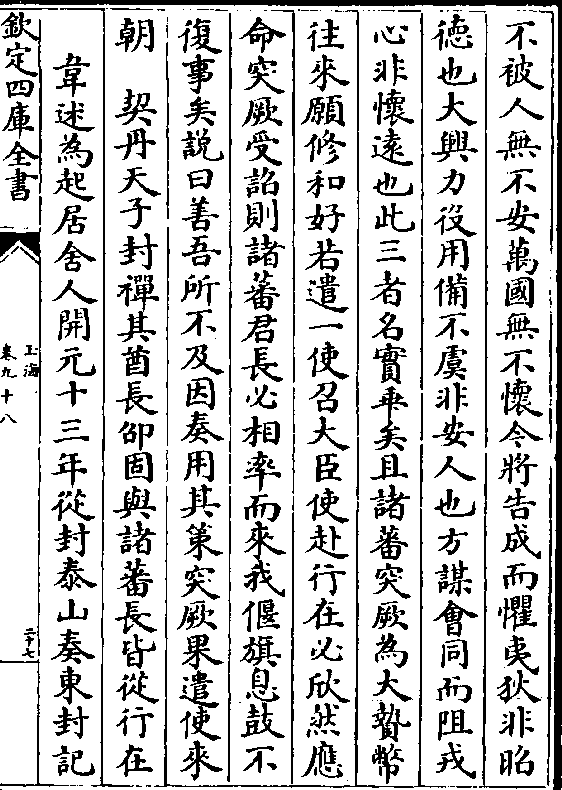 不被人無不安萬國無不懷令將告成而懼夷狄非昭
徳也大興力役用備不虞非安人也方謀會同而阻戎
心非懷逺也此三者名實乖矣且諸蕃突厥為大贄幣
往來願修和好若遣一使召大臣使赴行在必欣然應
命突厥受詔則諸蕃君長必相率而來我偃旗息鼓不
復事矣説曰善吾所不及因奏用其策突厥果遣使來
朝　契丹天子封禪其酋長邵固與諸蕃長皆從行在
韋述為起居舍人開元十三年從封泰山奏東封記
欽定四庫全書
玉海
卷九十八
二十七